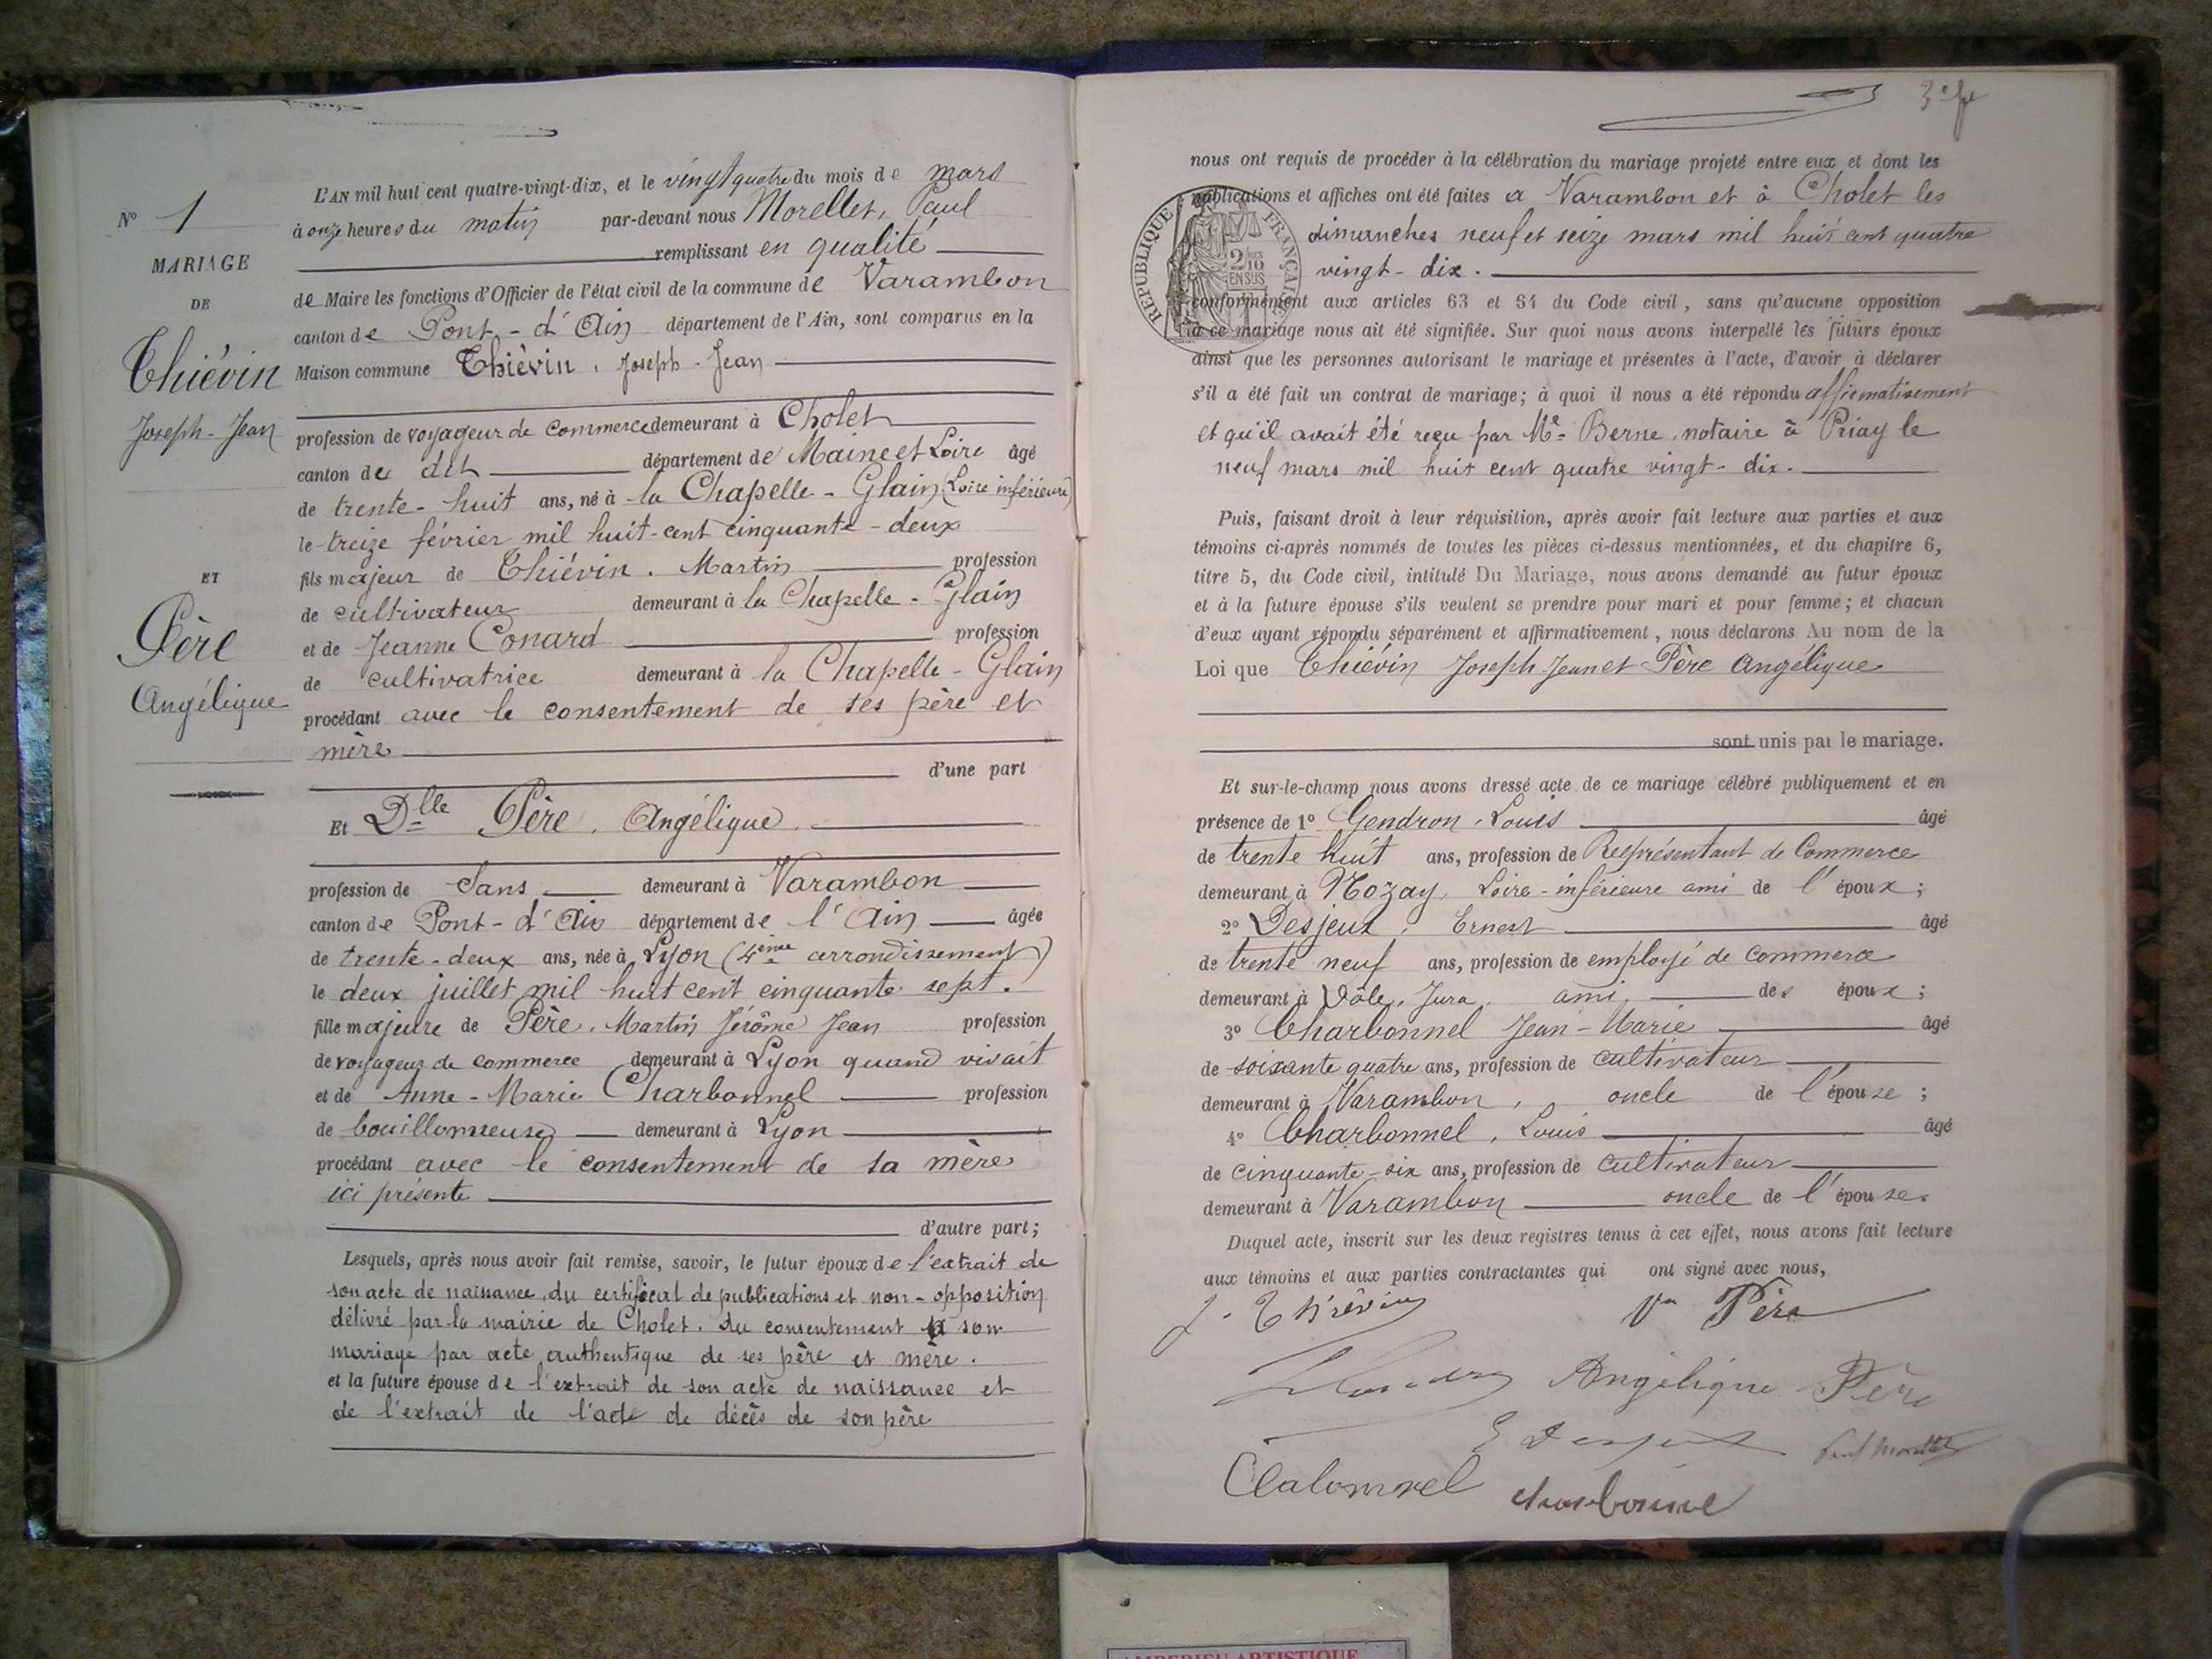 N° 1
MARIAGE
DE
Thiévin
Joseph-Jean
ET
Père
Angélique
L'AN mil huit cent quatre-vingt-dix, et le vingt quatre du mois de mars
à onze heures du matin par-devant nous Morellet, Paul
remplissant en qualité
de Maire les fonctions d'Officier de l'état civil de la commune de Varambon
canton de Pont-d'Ain département de l'Ain, sont comparus en la
Maison commune Thiévin, Joseph-Jean
profession de voyageur de commerce demeurant à Cholet
canton de dit département de Maine et Loire âgé
de trente-huit ans, né à la Chapelle-Glain (Loire inférieure)
le treize février mil huit-cent cinquante-deux
fils majeur de Thiévin, Martin profession
de cultivateur demeurant à la Chapelle-Glain
et de Jeanne Conard profession
de cultivatrice demeurant à la Chapelle-Glain
procédant avec le consentement de ses père et
mère
d'une part
Et Dlle Père, Angélique
profession de Sans demeurant à Varambon
canton de Pont-d'Ain département de l'Ain âgée
de trente-deux ans, née à Lyon (4ème arrondissement)
le deux juillet mil huit cent cinquante sept.
fille majeure de Père, Martin Jérôme Jean profession
de voyageur de commerce demeurant à Lyon quand vivait
et de Anne-Marie Charbonnel profession
de bouillonneuse demeurant à Lyon
procédant avec le consentement de sa mère
ici présente
d'autre part;
Lesquels, après nous avoir fait remise, savoir, le futur époux de l'extrait de
son acte de naissance, du certificat de publications et non-opposition
délivré par la mairie de Cholet, du consentement à son
mariage par acte authentique de ses père et mère.
et la future épouse de l'extrait de son acte de naissance et
de l'extrait de l'acte de décès de son père
nous ont requis de procéder à la célébration du mariage projeté entre eux et dont les
publications et affiches ont été faites à Varambon et à Cholet les
dimanches neuf et seize mars mil huit cent quatre
vingt-dix.
RÉPUBLIQUE FRANÇAISE
2/10 EN SUS
conformément aux articles 63 et 64 du Code civil, sans qu'aucune opposition
à ce mariage nous ait été signifiée. Sur quoi nous avons interpellé les futurs époux
ainsi que les personnes autorisant le mariage et présentes à l'acte, d'avoir à déclarer
s'il a été fait un contrat de mariage; à quoi il nous a été répondu affirmativement
et qu'il avait été reçu par Me Berne, notaire à Priay le
neuf mars mil huit cent quatre vingt-dix.
Puis, faisant droit à leur réquisition, après avoir fait lecture aux parties et aux
témoins ci-après nommés de toutes les pièces ci-dessus mentionnées, et du chapitre 6,
titre 5, du Code civil, intitulé Du Mariage, nous avons demandé au futur époux
et à la future épouse s'ils veulent se prendre pour mari et pour femme; et chacun
d'eux ayant répondu séparément et affirmativement, nous déclarons Au nom de la
Loi que Thiévin Joseph Jean et Père Angélique
sont unis par le mariage.
Et sur-le-champ nous avons dressé acte de ce mariage célébré publiquement et en
présence de 1° Gendron, Louis âgé
de trente huit ans, profession de Représentant de Commerce
demeurant à Nozay, Loire-inférieure ami de l'époux;
2° Desjeux, Ernest âgé
de trente neuf ans, profession de employé de commerce
demeurant à Dôle, Jura, ami des époux;
3° Charbonnel Jean-Marie âgé
de soixante quatre ans, profession de cultivateur
demeurant à Varambon, oncle de l'épouse;
4° Charbonnel, Louis âgé
de cinquante-six ans, profession de cultivateur
demeurant à Varambon oncle de l'épouse.
Duquel acte, inscrit sur les deux registres tenus à cet effet, nous avons fait lecture
aux témoins et aux parties contractantes qui ont signé avec nous,
J. Thiévin Vve Père
Angélique Père
E Desjeux Paul Morellet
Charbonnel
AMBERIEU ARTISTIQUE